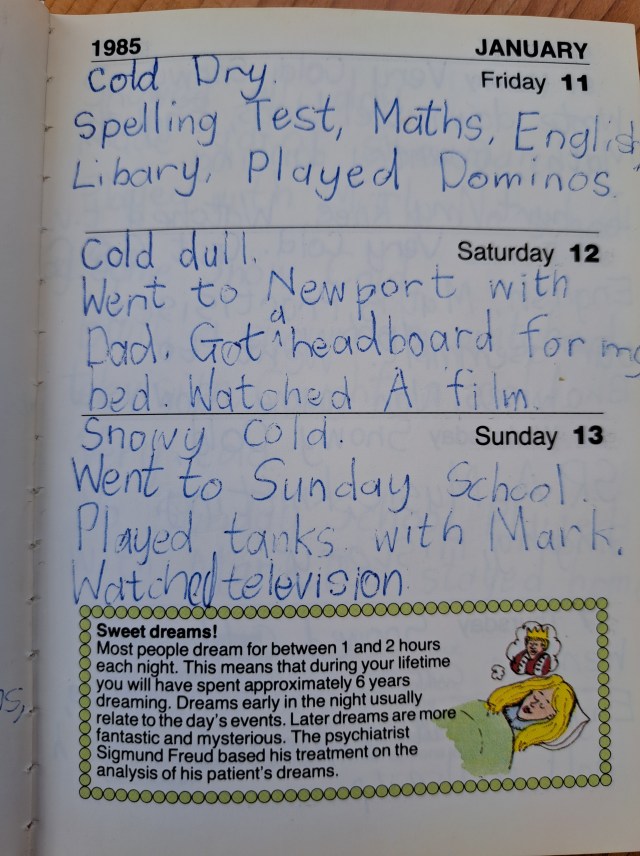 1985 JANUARY
Cold Dry. Friday 11
Spelling Test, Maths, English
Libary, Played Dominos.
Cold dull. Saturday 12
Went to Newport with
Dad. Got a headboard for my
bed. Watched A film.
Snowy Cold. Sunday 13
Went to Sunday School.
Played tanks with Mark.
Watched television
Sweet dreams!
Most people dream for between 1 and 2 hours
each night. This means that during your lifetime
you will have spent approximately 6 years
dreaming. Dreams early in the night usually
relate to the day's events. Later dreams are more
fantastic and mysterious. The psychiatrist
Sigmund Freud based his treatment on the
analysis of his patient's dreams.